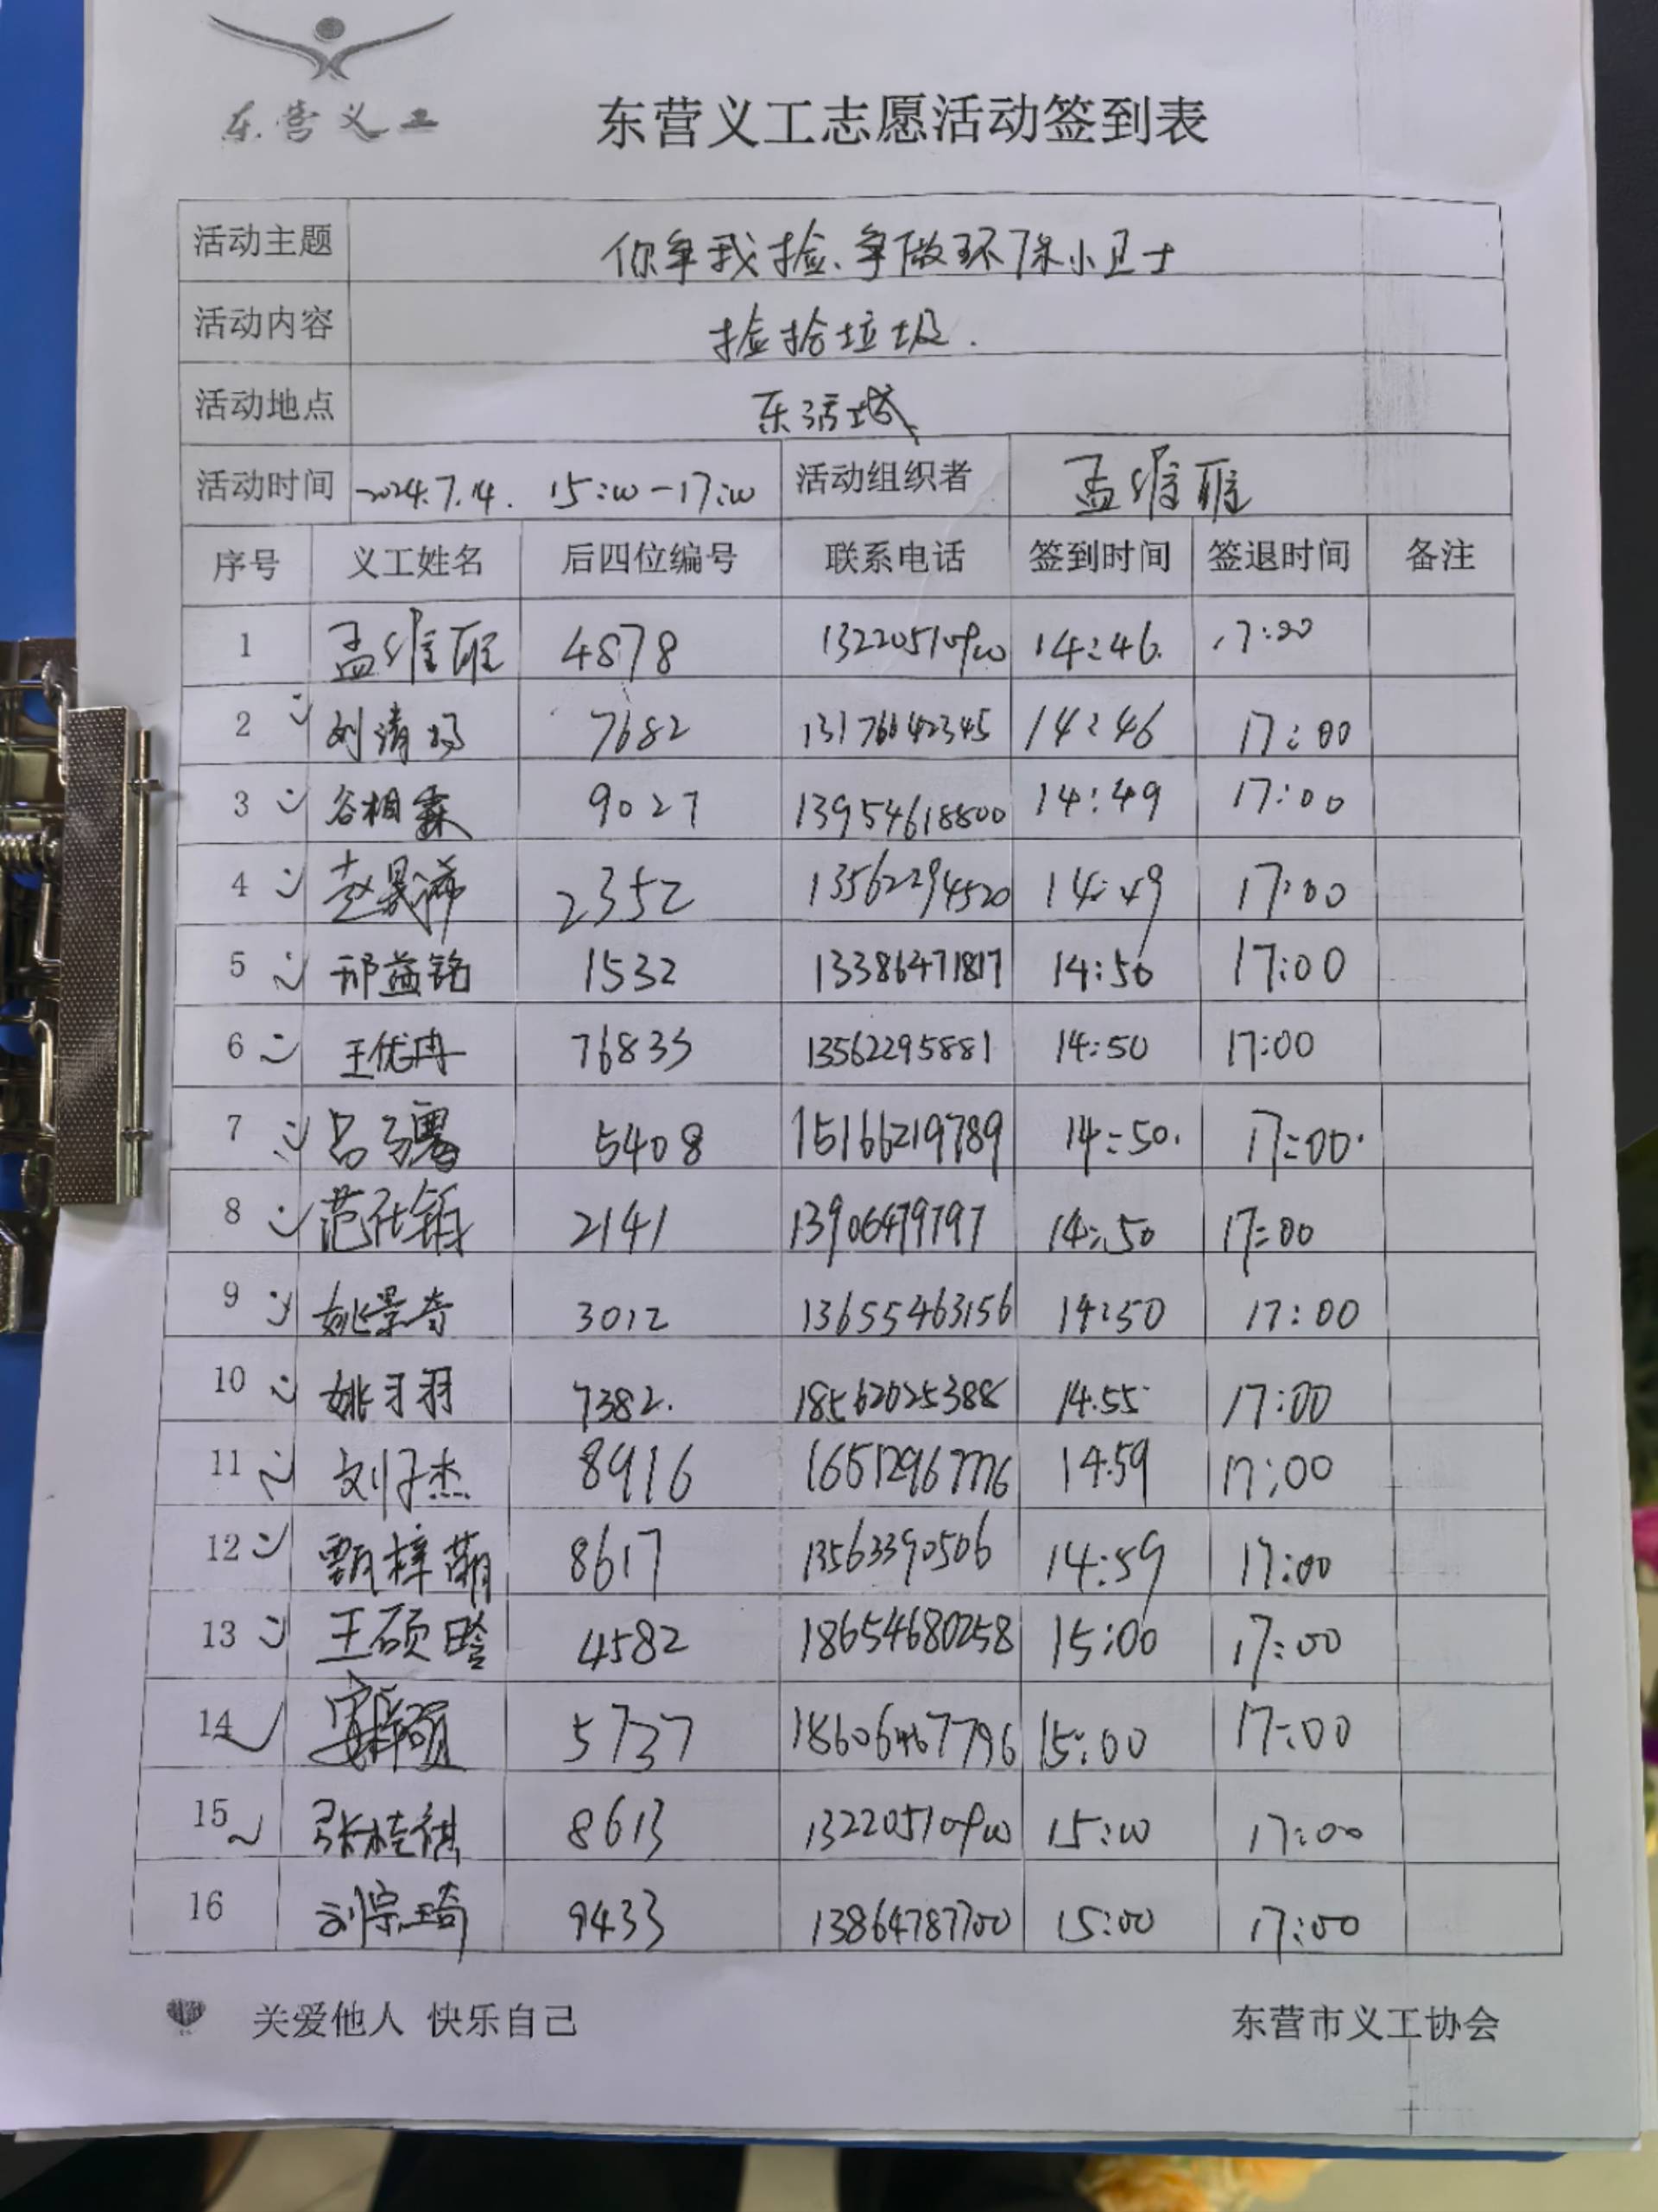 东营义工
东营义工志愿活动签到表
活动主题 你争我捡、争做环保小卫士
活动内容 捡拾垃圾.
活动地点 东活
活动时间 2024.7.14. 15:00-17:00 活动组织者 孟
序号 义工姓名 后四位编号 联系电话 签到时间 签退时间 备注
1 孟 4878 13220510900 14:46. 17:00
2 刘清 7682 13176642345 14:46 17:00
3 谷相霖 9027 13954618800 14:49 17:00
4 赵晟 2352 13562294520 14:49 17:00
5 邢益铭 1532 13386471817 14:50 17:00
6 王优冉 76833 13562295881 14:50 17:00
7 吕子骞 5408 15166219789 14:50. 17:00.
8 范 2141 13906479797 14:50 17:00
9 姚景奇 3012 13655463156 14:50 17:00
10 姚羽 7382. 18562025388 14.55 17:00
11 刘子杰 8916 16651296776 14.59 17:00
12 甄梓萌 8617 13563390506 14:59 17:00
13 王硕晗 4582 18654680258 15:00 17:00
14 5737 15:00 17:00
15 张桂祺 8613 13220510900 15:00 17:00
16 刘宗琦 9433 13864787700 15:00 17:00
关爱他人 快乐自己 东营市义工协会